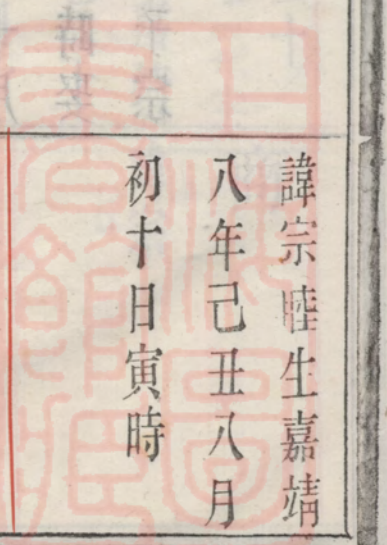 諱宗睦生嘉靖
八年己丑八月
初十日寅時